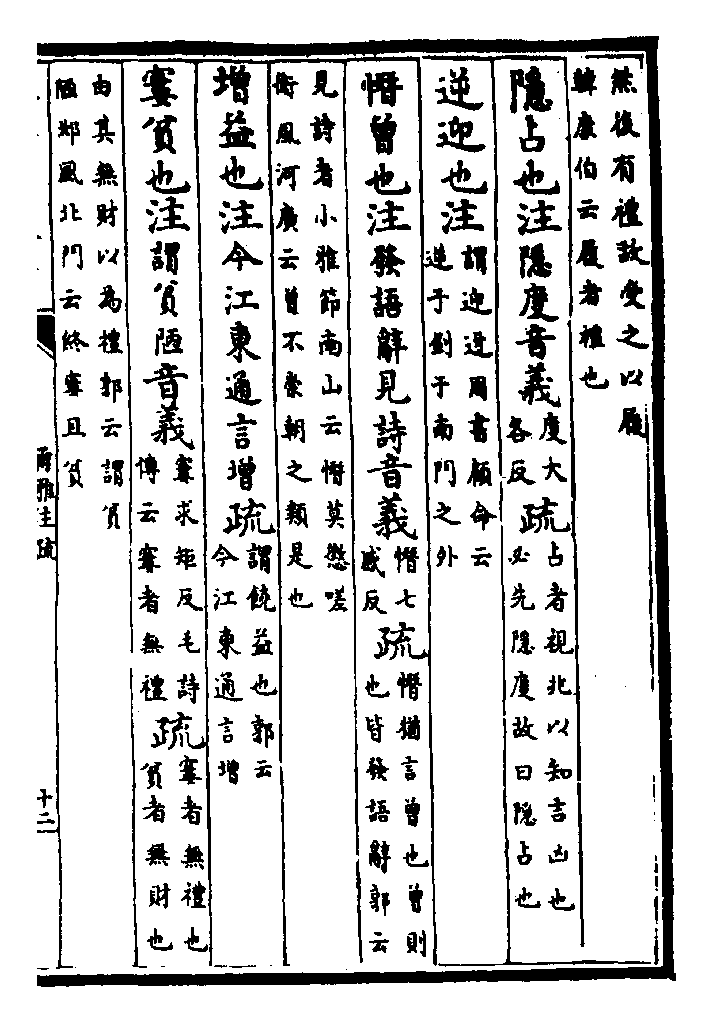 然後有禮故受之以履
韓康伯云履者禮也
隱占也注隱度音義度大
各反疏占者視兆以知吉凶也
必先隱度故曰隱占也
逆迎也注謂迎逆周書顧命云
逆于釗于南門之外
憯曾也注發語辭見詩音義憯七
感反疏憯猶言曾也曾則
也皆發語辭郭云
見詩者小雅節南山云憯莫懲嗟
衛風河廣云曾不崇朝之類是也
增益也注今江東通言增疏謂饒益也郭云
今江東通言增
窶貧也注謂貧陋音義窶求矩反毛詩
傳云窶者無禮疏窶者無禮也
貧者無財也
由其無財以為禮郭云謂貧
陋邶風北門云終窶且貧
爾雅注疏
十二